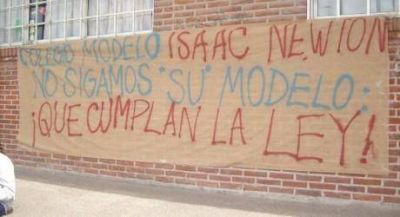 COLEGIO MODELO ISAAC NEWTON
NO SIGAMOS "SU" MODELO:
¡QUE CUMPLAN LA LEY!